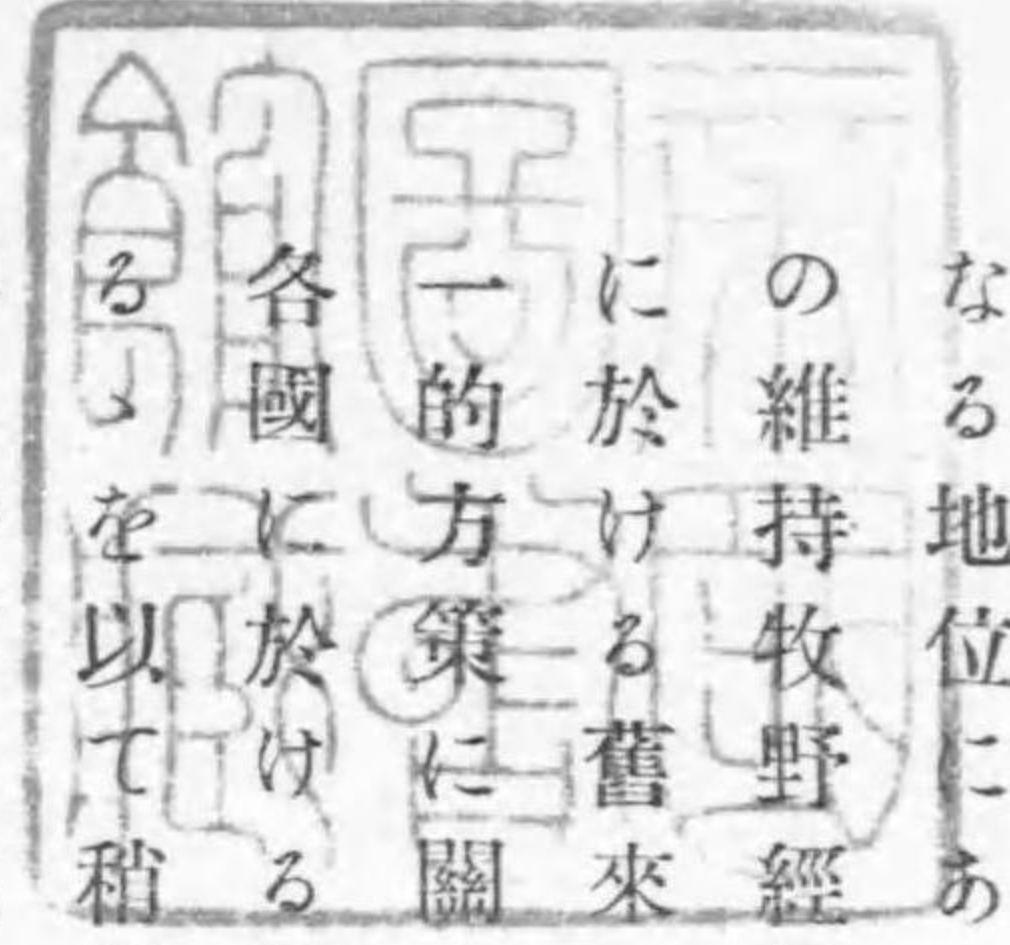 なる地位にあ
の維持牧野經
に於ける舊來
一的方策に關
各國に於ける
るゝを以て稍